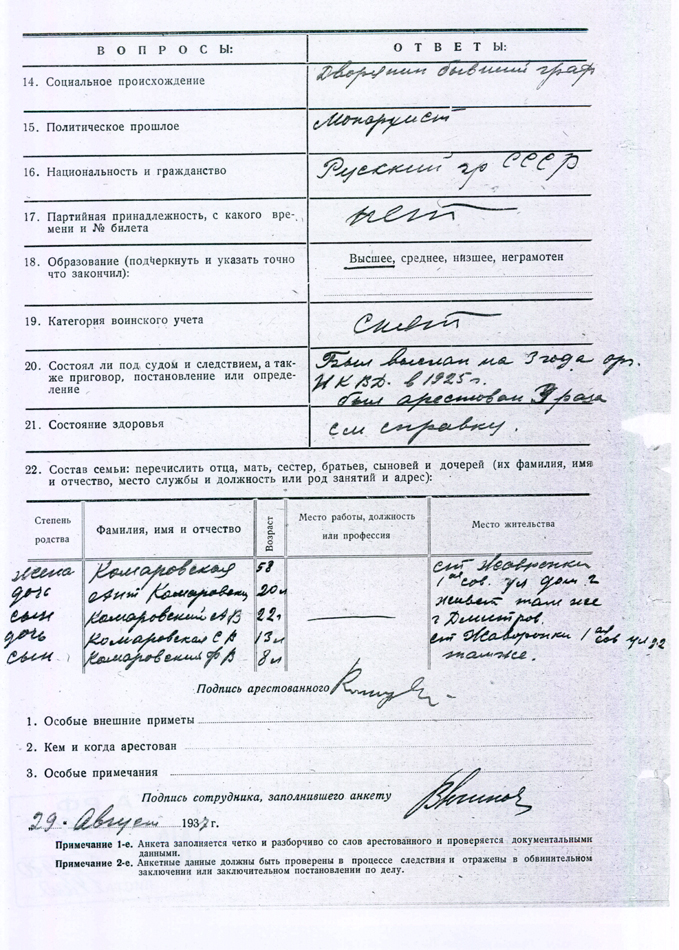 ВОПРОСЫ: ОТВЕТЫ:
14. Социальное происхождение Дворянин бывший граф
15. Политическое прошлое Монархист
16. Национальность и гражданство Русский гр СССР
17. Партийная принадлежность, с какого вре-
мени и № билета нет
18. Образование (подчеркнуть и указать точно Высшее, среднее, низшее, неграмотен
что закончил):
19. Категория воинского учета снят
20. Состоял ли под судом и следствием, а так- Был выслан на 3 года орг.
же приговор, постановление или опреде- НКВД. в 1925 г.
ление был арестован раза
21. Состояние здоровья см справку.
22. Состав семьи: перечислить отца, мать, сестер, братьев, сыновей и дочерей (их фамилия, имя
и отчество, место службы и должность или род занятий и адрес):
Степень родства Фамилия, имя и отчество Возраст Место работы, должность или профессия Место жительства
жена Комаровская 58 ст Жаворонки
1ая сов. ул дом. 2
дочь Ант Комаровская 20л живет там же
сын Комаровский А В 22г г Дмитров.
дочь Комаровская С В 13л ст Жаворонки 1ая сов ул 22
сын Комаровский Ф В 8л там же.
Подпись арестованного
1. Особые внешние приметы
2. Кем и когда арестован
3. Особые примечания
Подпись сотрудника, заполнившего анкету
29. Август 1937 г.
Примечание 1-е. Анкета заполняется четко и разборчиво со слов арестованного и проверяется документальными
данными.
Примечание 2-е. Анкетные данные должны быть проверены в процессе следствия и отражены в обвинительном
заключении или заключительном постановлении по делу.